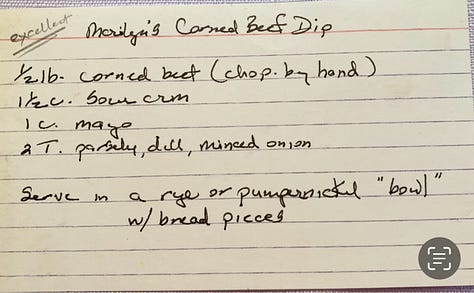 excellent
Marilyn's Corned Beef Dip
1/2 lb. corned beef (chop. by hand)
1 1/2 c. sour crm
1 c. mayo
2 T. parsely, dill, minced onion
Serve in a rye or pumpernickel "bowl"
w/ bread pieces